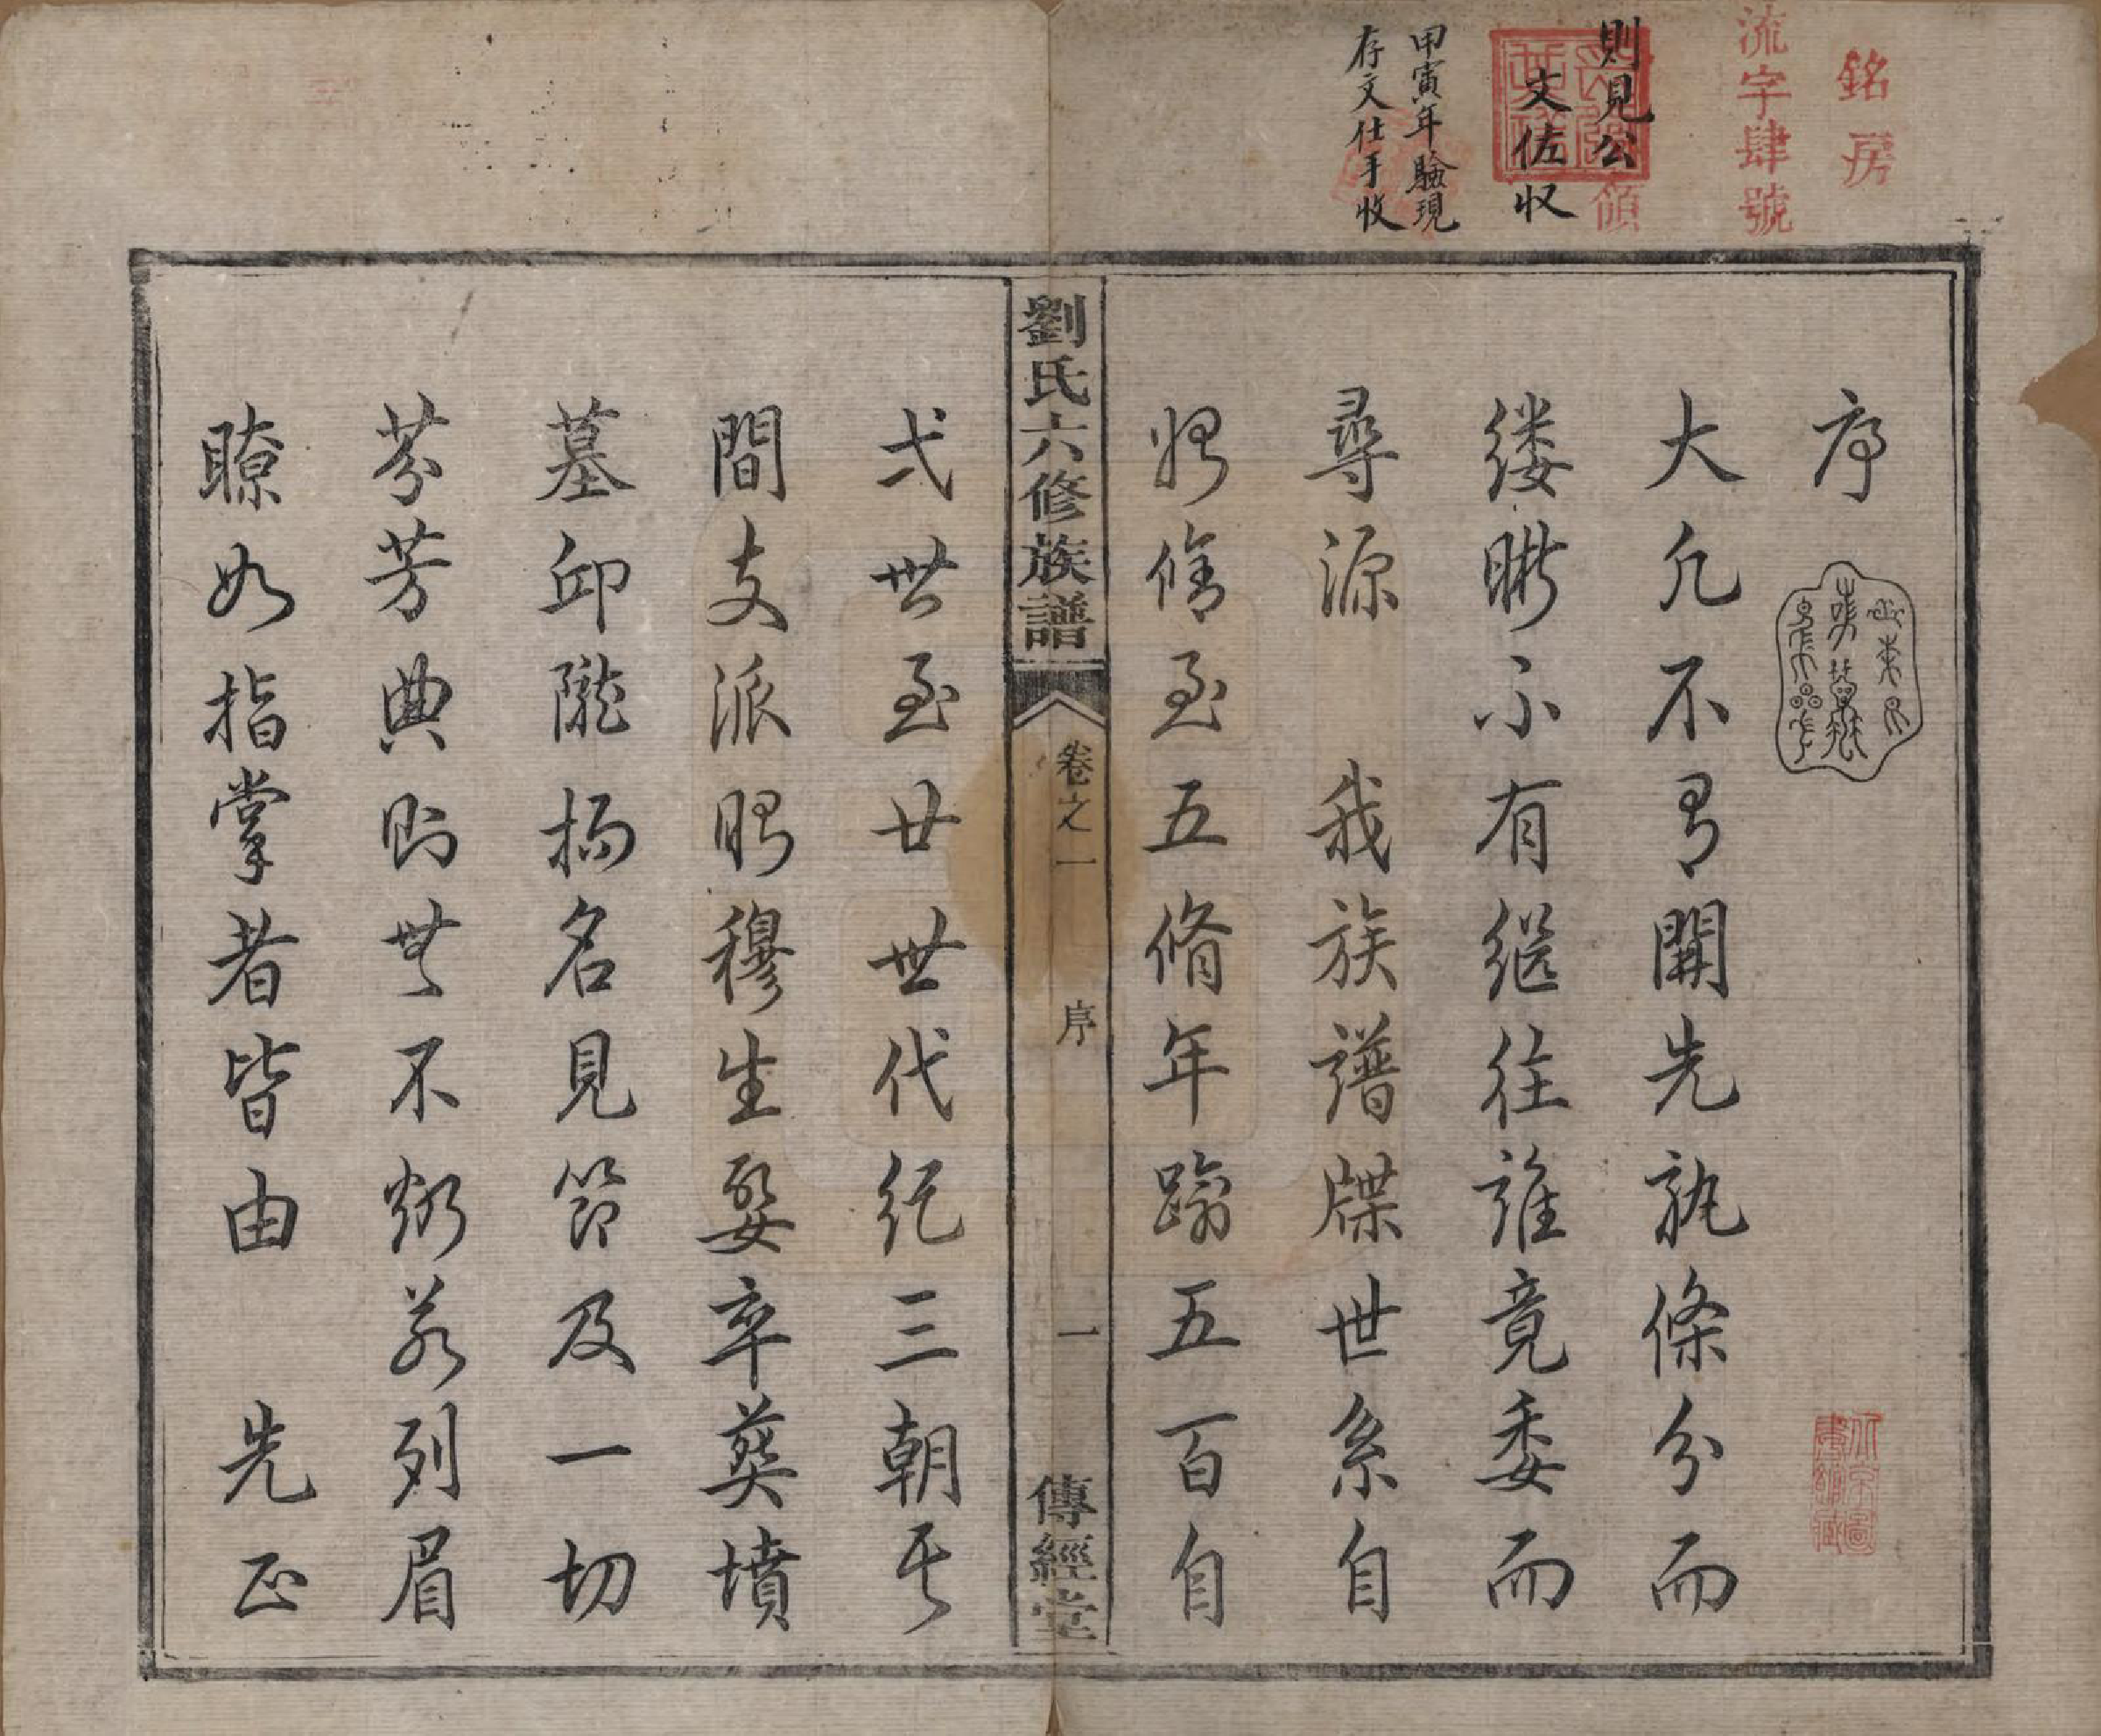 銘房
流字肆號
則見公
領
文佐収
甲寅年驗現
存文仕手收
序
大凢不有開先孰條分而
缕晰不有继往誰竟委而
尋源 我族譜牒世系自
始脩至五脩年踰五百自
弌世至廿世代紀三朝其
間支派昭穆生娶卒葬墳
墓邱隴揚名見節及一切
芬芳典則無不炳若列眉
瞭如指掌者皆由 先正
劉氏六修族譜
卷之一
序
一
傳經堂